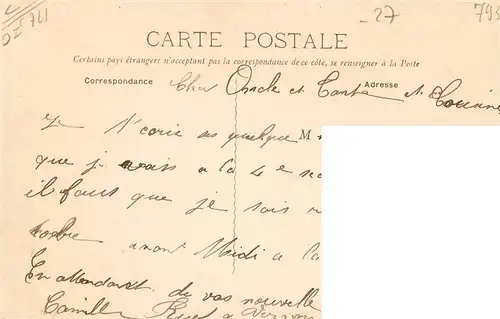 27
793
CARTE POSTALE
Certains pays étrangers n'acceptant pas la correspondance de ce côté, se renseigner à la Poste
Correspondance
Adresse
Cher Oncle et Tante et Cousine
Je t'écris ces quelque
M
que je vais a la 4e
il faut que je sois
avant Midi a la
En attendant de vos nouvelle
Camille